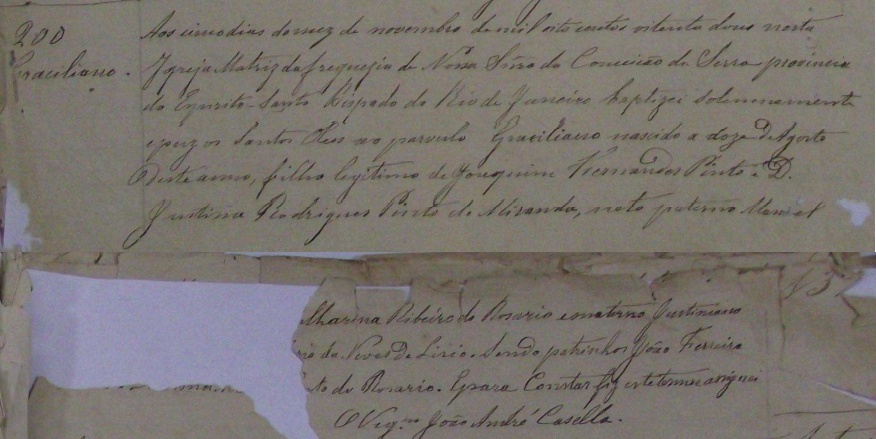 200
Graciliano.
Aos cinco dias do mez de novembro de mil oito centos oitenta dous nesta
Igreja Matriz da freguezia de Nossa Snra da Conceicão da Serra provincia
do Espirito-Santo Bispado do Rio de Janeiro baptizei solennemente
e puz os Santos Oleos ao parvulo Graciliano nascido a doze D'Agosto
deste anno, filho legitimo de Joaquim Fernandes Pinto e D.
Justina Rodrigues Pinto de Miranda, neto paterno Manoel
Marina Ribeiro do Rosario e materno Justiniano
das Neves De Lirio. Sendo padrinhos João Ferreira
to do Rosario. E para Constar fiz este termo assignei
O Vig.ro João André Casella.